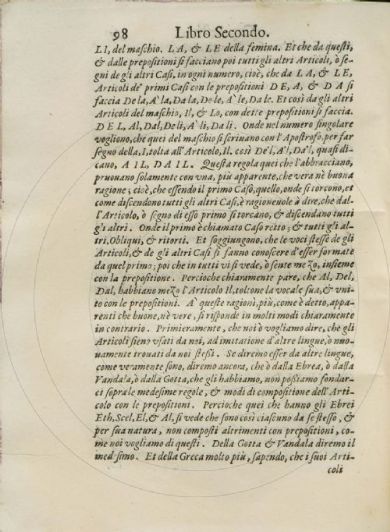 98 Libro Secondo.
LI, del maschio. LA, & LE della femina. Et che da questi,
& dalle prepositioni si facciano poi tutti gli altri Articoli, ò se-
gni de gli altri Casi, in ogni numero, cioè, che da LA, & LE,
Articoli de' primi Casi con le prepositioni DE, A, & DA si
faccia De la, A' la, Da la, De le, A' le, Da le. Et così da gli altri
Articoli del maschio, Il, & Lo, con dette prepositioni si faccia.
DEL, Al, Dal, De li, A' li, Da li. Onde nel numero singolare
vogliono, che quei del maschio si scrivano con l'Apostrofo, per far
segno della I, tolta all'Articolo, Il. così De'l, A'l, Da'l, quasi di-
cano, A IL, DA IL. Questa regola quei che l'abbracciano,
pruouano solamente con vna, più apparente, che vera nè buona
ragione; cioè, che essendo il primo Caso, quello, onde si torcono, et
come discendono tutti gli altri Casi, è ragioneuole à dire, che dal-
l'Articolo, ò segno di esso primo si torcano, & discendano tutti
gl'altri. Onde il primo è chiamato Caso retto; & tutti gl'al-
tri, Obliqui, & ritorti. Et soggiungono, che le voci stesse de gli
Articoli, & de gli altri Casi si fanno conoscere d'esser formate
da quel primo; poi che in tutti vi si vede, ò sente mezo, insieme
con la prepositione. Percioche chiaramente pare, che Al, Del,
Dal, habbiano mezo l'Articolo Il, toltone la vocale sua, & vni-
to con le prepositioni. A' queste ragioni, più, come è detto, appa-
renti che buone, nè vere, si risponde in molti modi chiaramente
in contrario. Primieramente, che noi ò vogliamo dire, che gli
Articoli sieno vsati da noi, ad imitatione d'altre lingue, ò nuo-
uamente trouati da noi stessi. Se diremo esser da altre lingue,
come veramente sono, diremo ancora, che ò dalla Ebrea, ò dalla
Vandala, ò dalla Gotta, che gli habbiamo, non possiamo fondar-
ci sopra le medesime regole, & modi di compositione dell'Arti-
colo con le prepositioni. Percioche quei che hanno gli Ebrei
Eth, Scel, El, & Al, si vede che sono così ciascuno da se stesso, &
per sua natura, non composti altrimenti con prepositioni, co-
me noi vogliamo di questi. Della Gotta & Vandala diremo il
medesimo. Et della Greca molto più, sapendo, che i suoi Arti-
coli